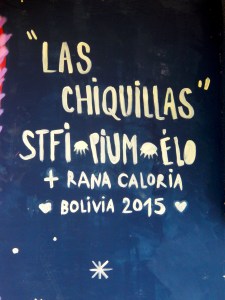 "LAS
CHIQUILLAS"
STFI PIUM ÉLO
+ RANA CALORIA
BOLIVIA 2015